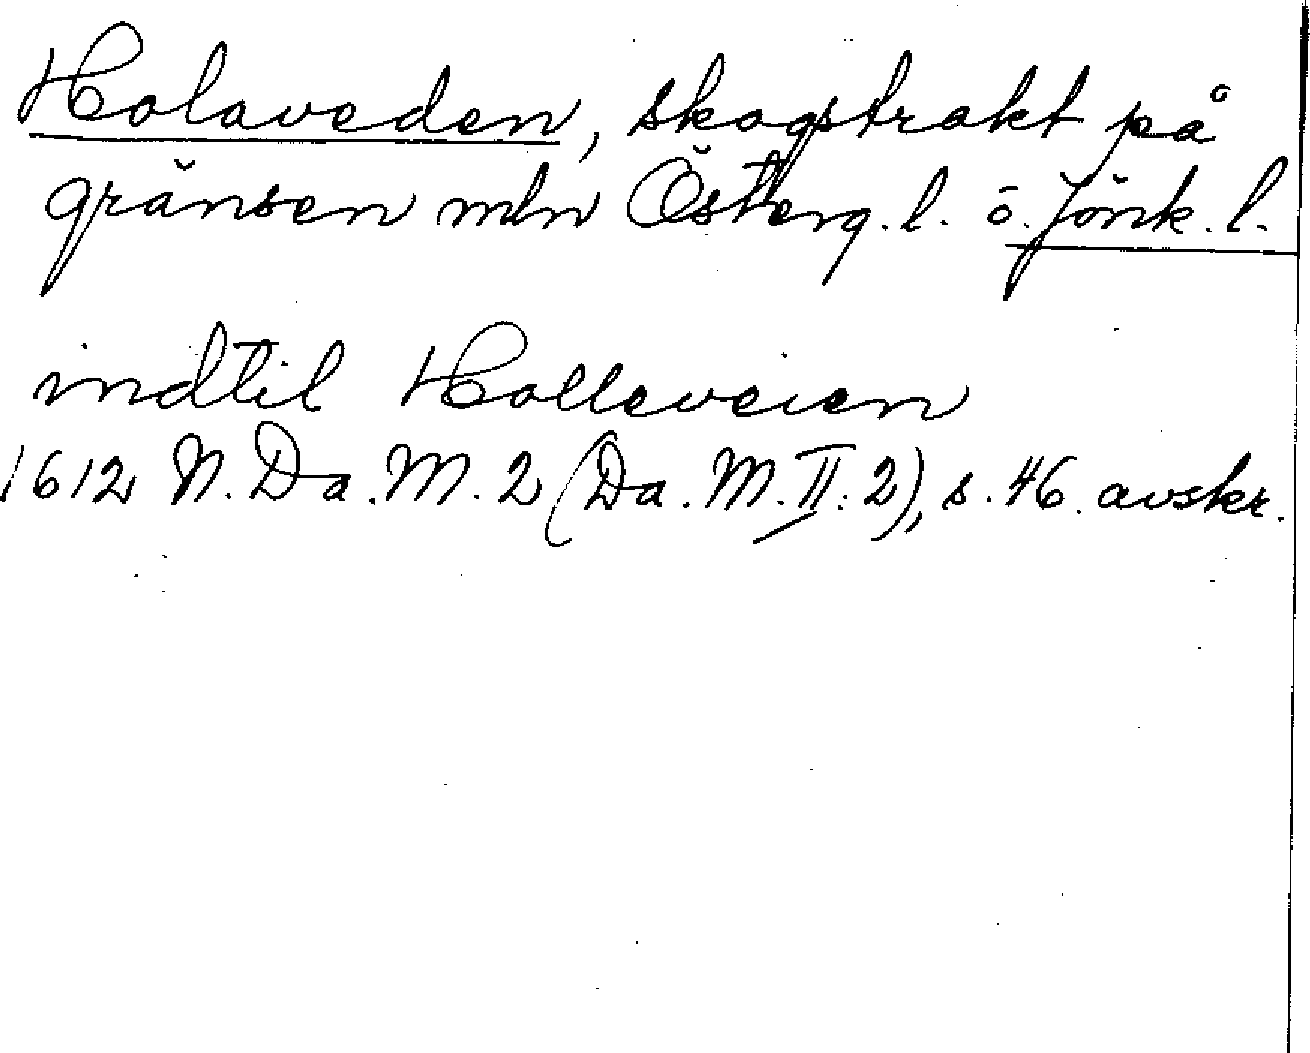 Holaveden, skogstrakt på
gränsen mln Österg. l. ö. Jönk. l.
indtil Holleveien
1612 N. Da. M. 2 (Da. M. II: 2), s. 46. avskr.